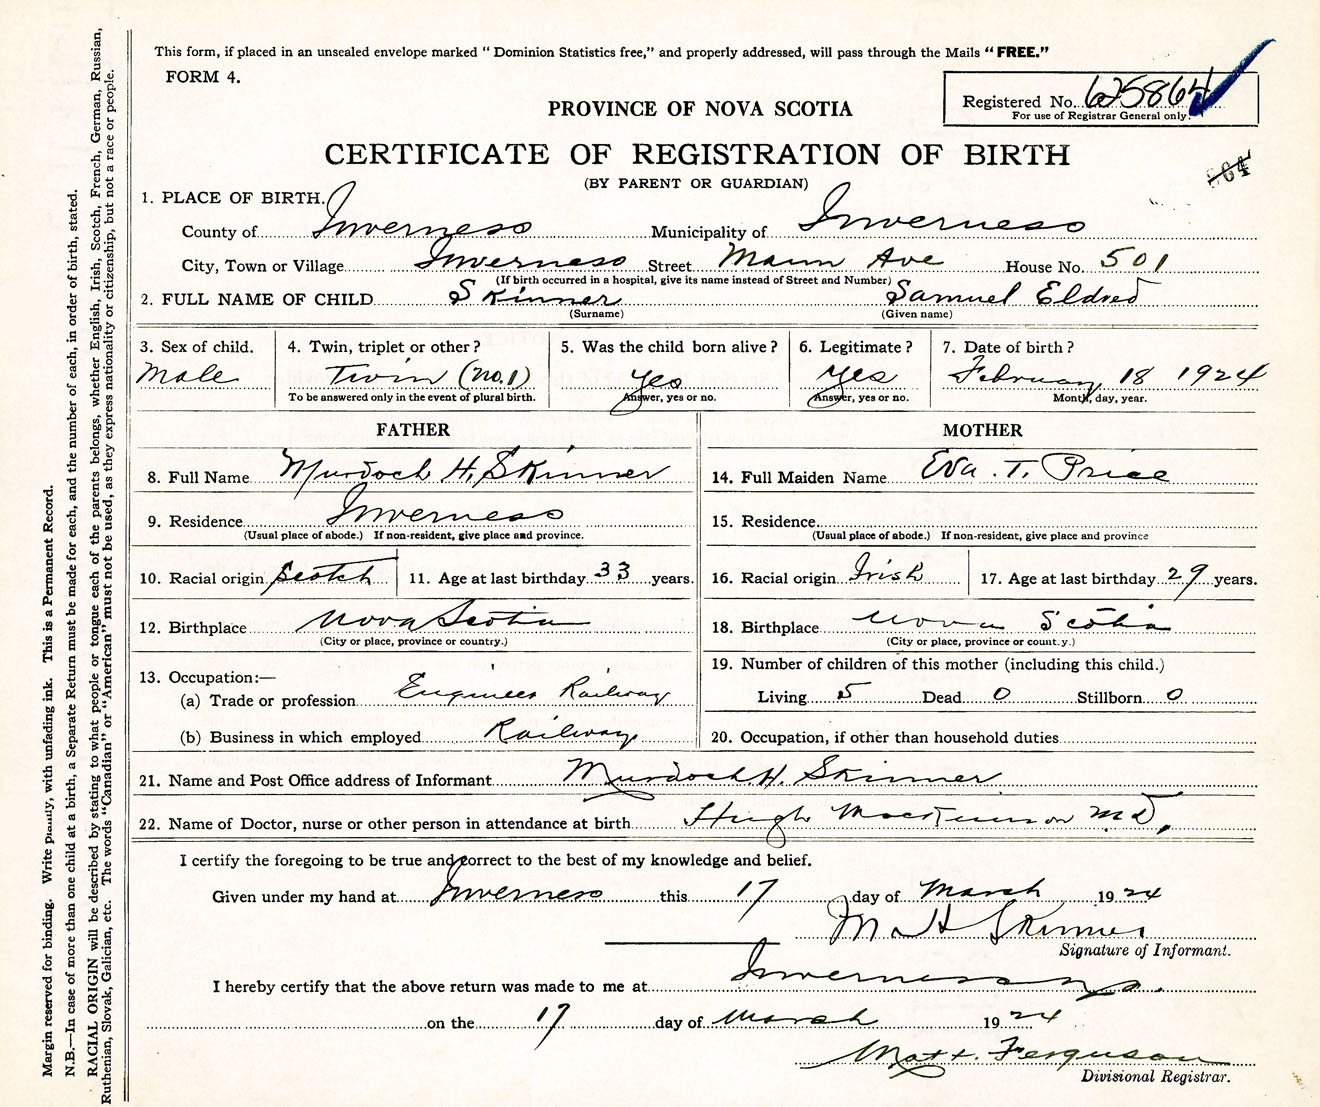 This form, if placed in an unsealed envelope marked " Dominion Statistics free," and properly addressed, will pass through the Mails "FREE."
FORM 4.
Registered No. 625864
For use of Registrar General only.
PROVINCE OF NOVA SCOTIA
CERTIFICATE OF REGISTRATION OF BIRTH
(BY PARENT OR GUARDIAN)
864
1. PLACE OF BIRTH.
County of Inverness Municipality of Inverness
City, Town or Village Inverness Street Mann Ave House No. 501
(If birth occurred in a hospital, give its name instead of Street and Number)
2. FULL NAME OF CHILD Skinner Samuel Eldred
(Surname) (Given name)
3. Sex of child. 4. Twin, triplet or other? 5. Was the child born alive? 6. Legitimate? 7. Date of birth?
Male Twin (No.1) Yes Yes February 18 1924
To be answered only in the event of plural birth. Answer, yes or no. Answer, yes or no. Month, day, year.
FATHER MOTHER
8. Full Name Murdoch H. Skinner 14. Full Maiden Name Eva. T. Price
9. Residence Inverness 15. Residence
(Usual place of abode.) If non-resident, give place and province. (Usual place of abode.) If non-resident, give place and province
10. Racial origin Scotch 11. Age at last birthday 33 years. 16. Racial origin Irish 17. Age at last birthday 29 years.
12. Birthplace Nova Scotia 18. Birthplace Nova Scotia
(City or place, province or country.) (City or place, province or count.y.)
13. Occupation:— 19. Number of children of this mother (including this child.)
(a) Trade or profession Engineer Railway Living 5 Dead 0 Stillborn 0
(b) Business in which employed Railway 20. Occupation, if other than household duties
21. Name and Post Office address of Informant Murdoch. H. Skinner
22. Name of Doctor, nurse or other person in attendance at birth Hugh M.D,
I certify the foregoing to be true and correct to the best of my knowledge and belief.
Given under my hand at Inverness this 17 day of March 1924
M H Skinner
Signature of Informant.
I hereby certify that the above return was made to me at Inverness
on the 17 day of March 1924
Matt. Ferguson
Divisional Registrar.
Margin reserved for binding. Write plainly, with unfading ink. This is a Permanent Record.
N.B.—In case of more than one child at a birth, a Separate Return must be made for each, and the number of each, in order of birth, stated.
RACIAL ORIGIN will be described by stating to what people or tongue each of the parents belongs, whether English, Irish, Scotch, French, German, Russian,
Ruthenian, Slovak, Galician, etc. The words "Canadian" or "American" must not be used, as they express nationality or citizenship, but not a race or people.